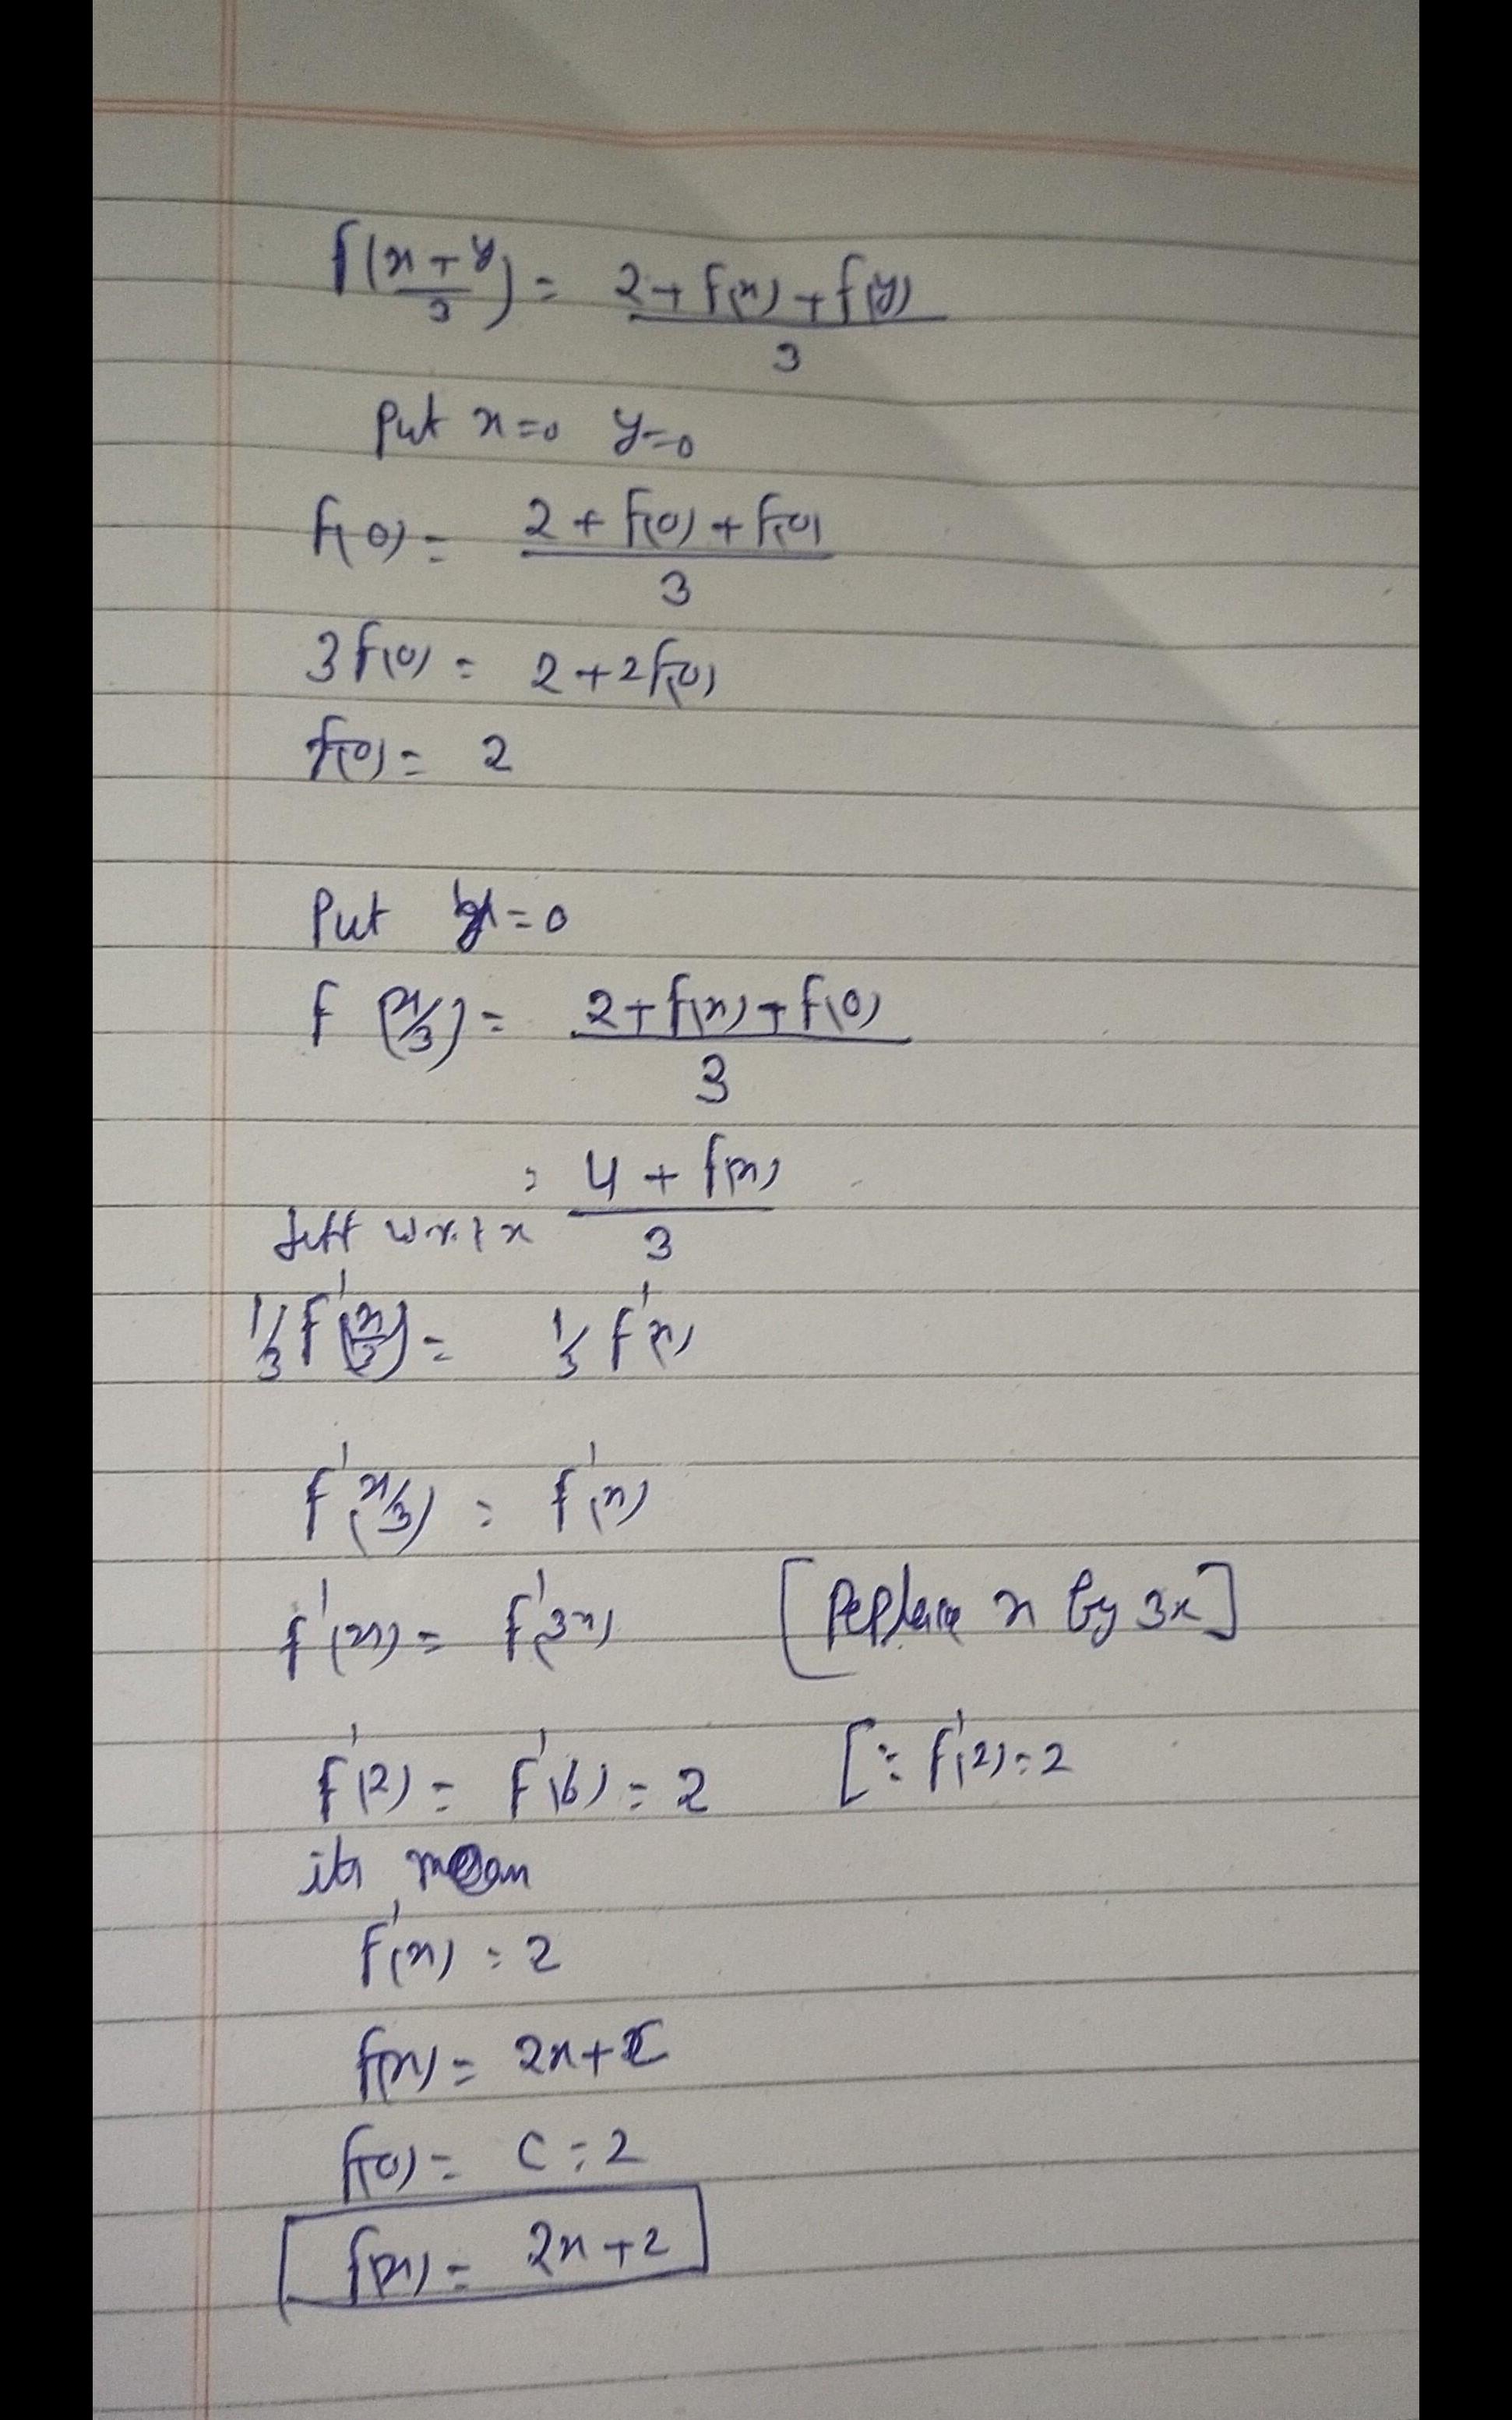 f(x+y/3) = 2+f(x)+f(y)/3
Put x=0 y=0
f(0) = 2+f(0)+f(0)/3
3f(0) = 2+2f(0)
f(0) = 2
Put y=0
f(x/3) = 2+f(x)+f(0)/3
= 4+f(x)/3
diff w.r.t x
1/3 f'(x/3) = 1/3 f'(x)
f'(x/3) = f'(x)
f'(x) = f'(3x) [Peplace x by 3x]
f'(2) = f'(6) = 2 [∵ f'(2)=2
its mean
f'(x) = 2
f(x) = 2x+C
f(0) = C = 2
f(x) = 2x+2